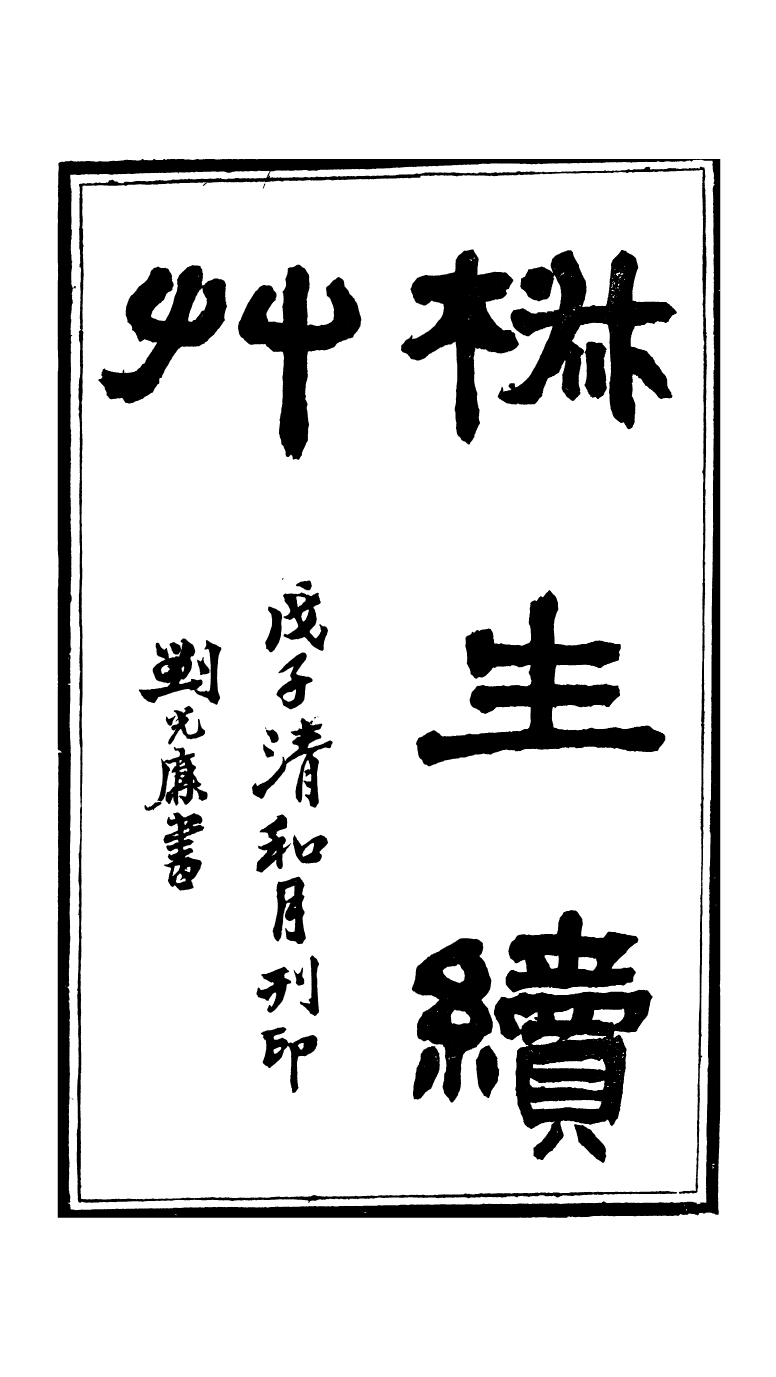 椒生續
艸
戊子清和月刊印
劉光廉書